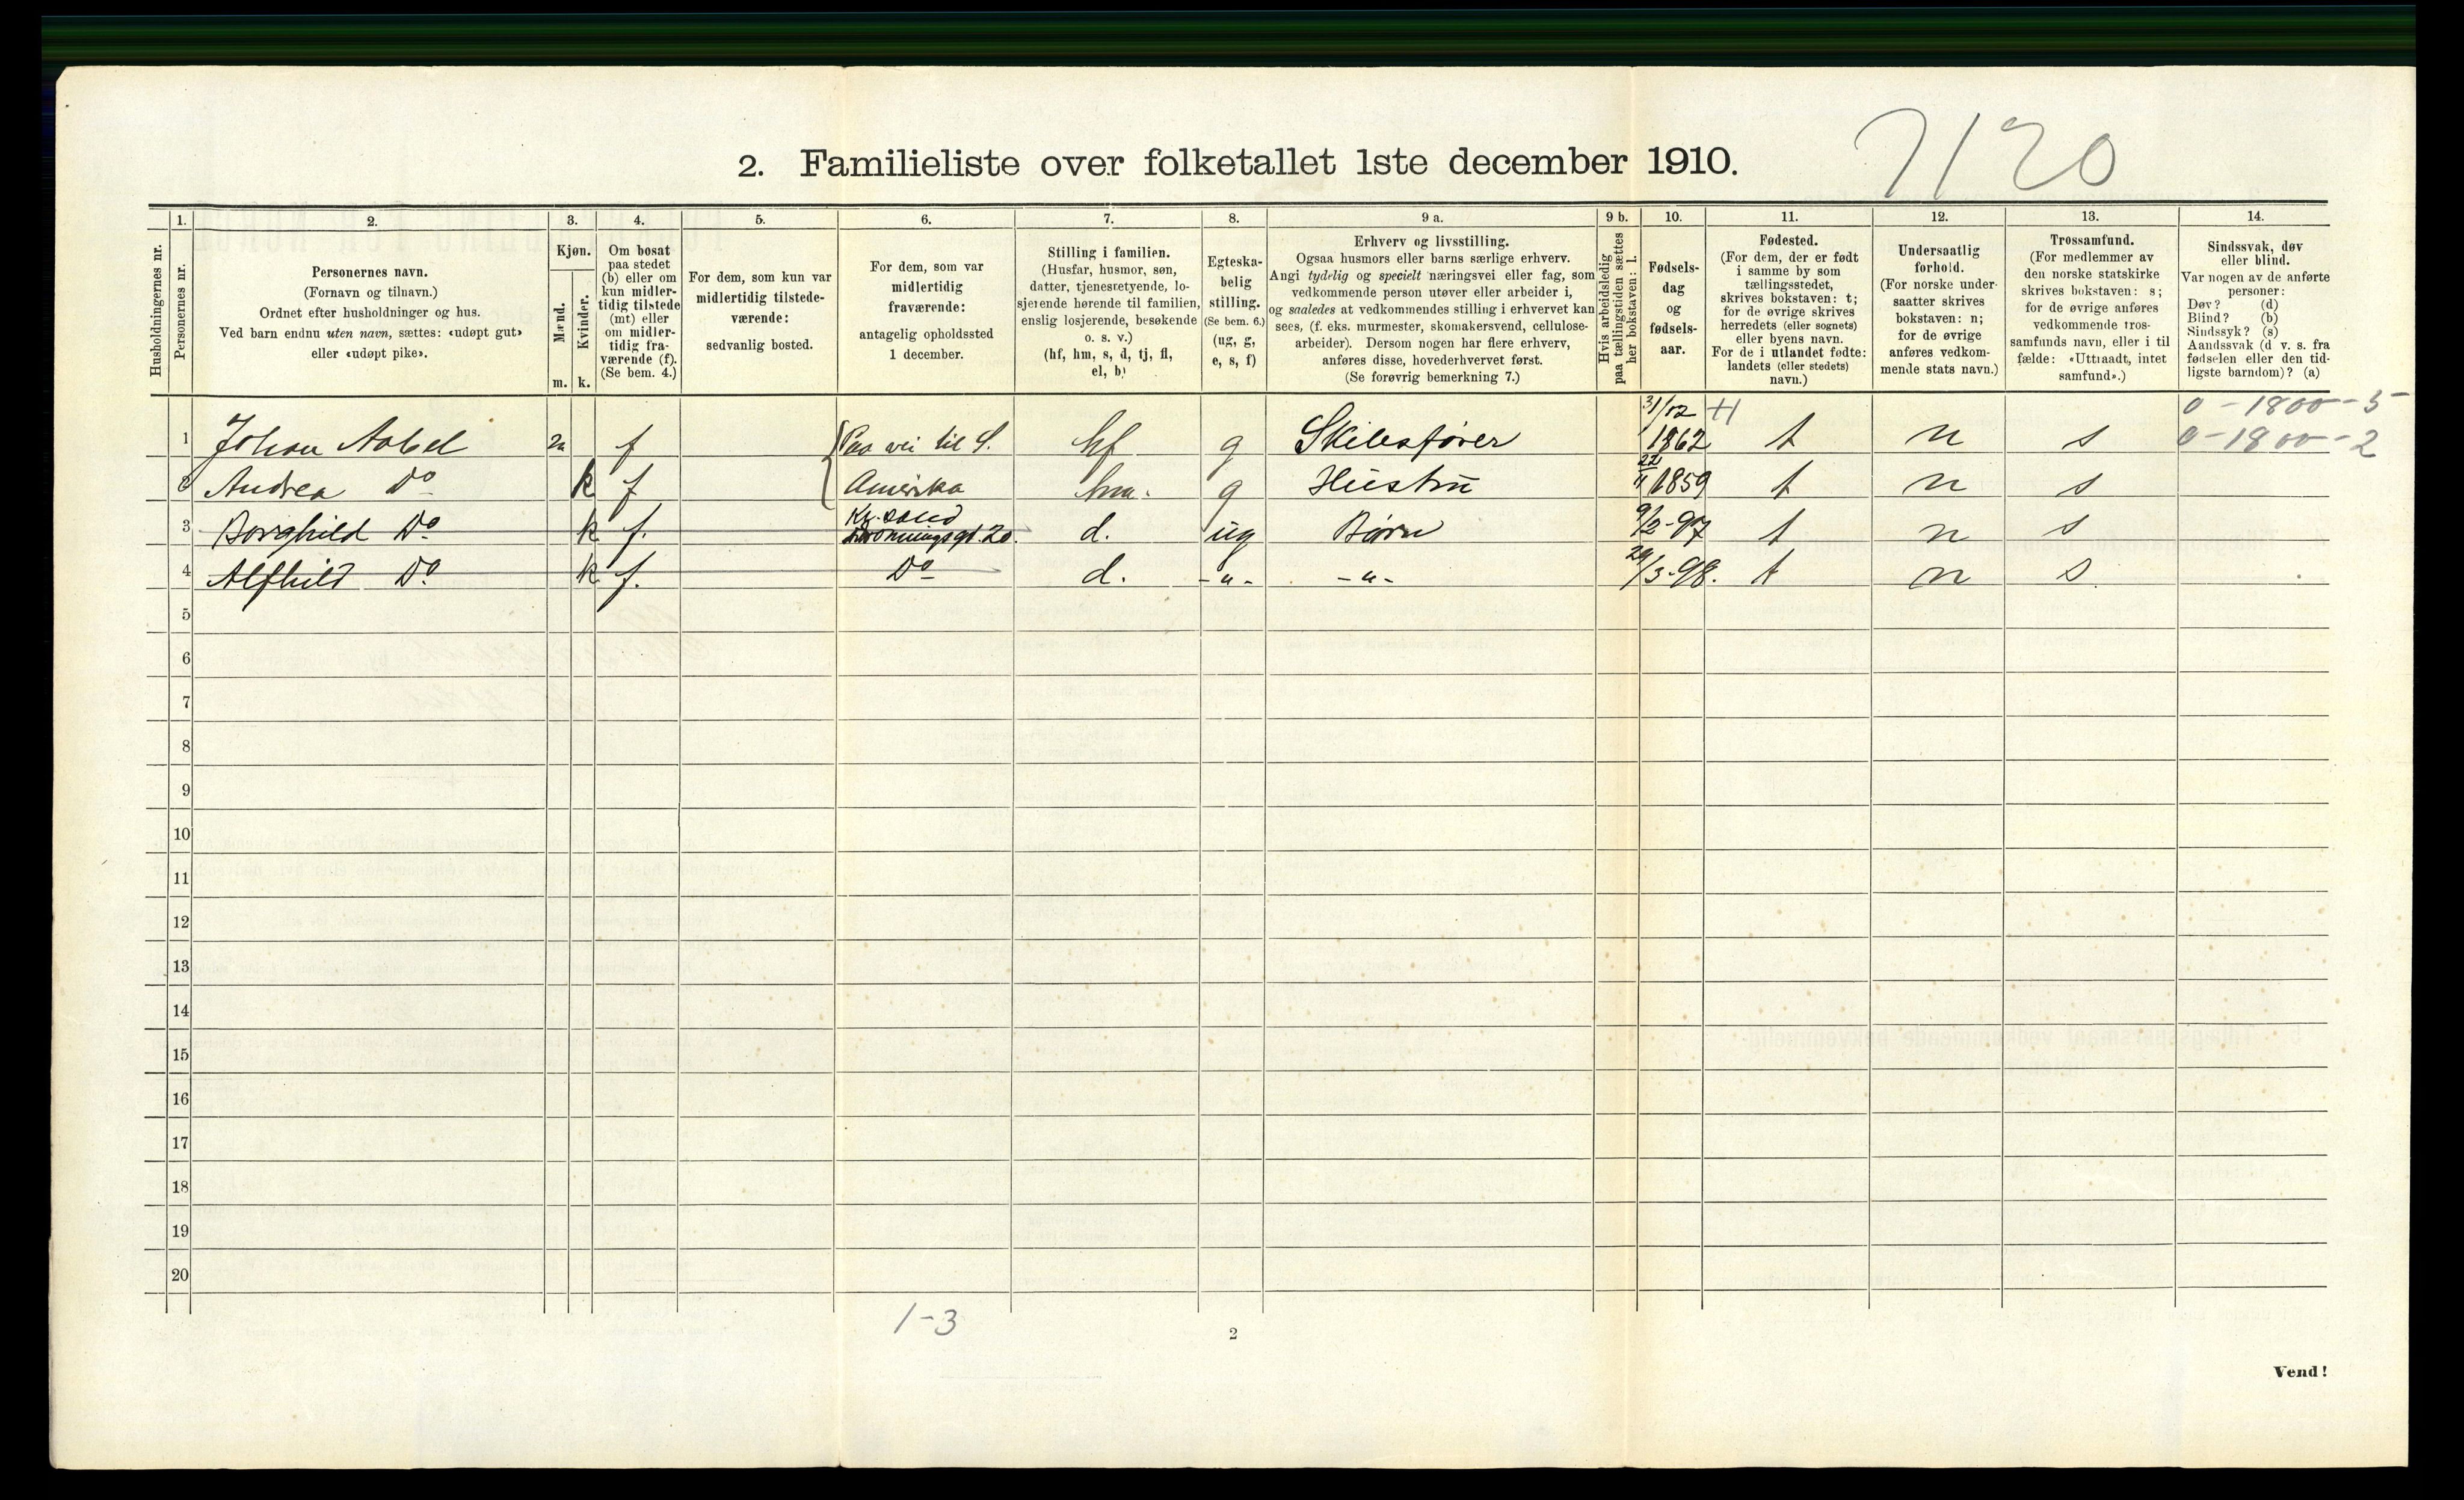 7120
2. Familieliste over folketallet 1ste december 1910.
Husholdningernes nr.
1.
Personernes nr.
2.
Personernes navn.
(Fornavn og tilnavn.)
Ordnet efter husholdninger og hus.
Ved barn endnu uten navn, sættes: «udøpt gut»
eller «udøpt pike».
3.
Kjøn.
Mænd.
Kvinder.
m. k.
4.
Om bosat
paa stedet
(b) eller om
kun midler-
tidig tilstede
(mt) eller
om midler-
tidig fra-
værende (f).
(Se bem. 4.)
5.
For dem, som kun var
midlertidig tilstede-
værende:
sedvanlig bosted.
6.
For dem, som var
midlertidig
fraværende:
antagelig opholdssted
1 december.
7.
Stilling i familien.
(Husfar, husmor, søn,
datter, tjenestetyende, lo-
sjerende hørende til familien,
enslig losjerende, besøkende
o. s. v.)
(hf, hm, s, d, tj, fl,
el, b)
8.
Egteska-
belig
stilling.
(Se bem. 6.)
(ug, g,
e, s, f)
9 a.
Erhverv og livsstilling.
Ogsaa husmors eller barns særlige erhverv.
Angi tydelig og specielt næringsvei eller fag, som
vedkommende person utøver eller arbeider i,
og saaledes at vedkommendes stilling i erhvervet kan
sees, (f. eks. murmester, skomakersvend, cellulose-
arbeider). Dersom nogen har flere erhverv,
anføres disse, hovederhvervet først.
(Se forøvrig bemerkning 7.)
9 b.
Hvis arbeidsledig
paa tællingstiden sættes
her bokstaven: l.
10.
Fødsels-
dag
og
fødsels-
aar.
11.
Fødested.
(For dem, der er født
i samme by som
tællingsstedet,
skrives bokstaven: t;
for de øvrige skrives
herredets (eller sognets)
eller byens navn.
For de i utlandet fødte:
landets (eller stedets)
navn.)
12.
Undersaatlig
forhold.
(For norske under-
saatter skrives
bokstaven: n;
for de øvrige
anføres vedkom-
mende stats navn.)
13.
Trossamfund.
(For medlemmer av
den norske statskirke
skrives bokstaven: s;
for de øvrige anføres
vedkommende tros-
samfunds navn, eller i til-
fælde: «Uttraadt, intet
samfund».)
14.
Sindssvak, døv
eller blind.
Var nogen av de anførte
personer:
Døv? (d)
Blind? (b)
Sindssyk? (s)
Aandssvak (d v. s. fra
fødselen eller den tid-
ligste barndom)? (a)
0 - 1800 - 5
0 - 1800 - 2
1 Johan Aabel m f Paa vei til S. hf g Skibsfører 31/12 1862 t n s
2 Andrea Do k f Amerika hm. g Hustru 22/11 1859 t n s
3 Borghild Do k f. Kr.sand Dronningsgt. 20. d. ug Børn 9/2-97 t n s
4 Alfhild Do k f. Do d. -"- -"- 29/3-98. t n s
5
6
7
8
9
10
11
12
13
14
15
16
17
18
19
20
1-3
2
Vend!